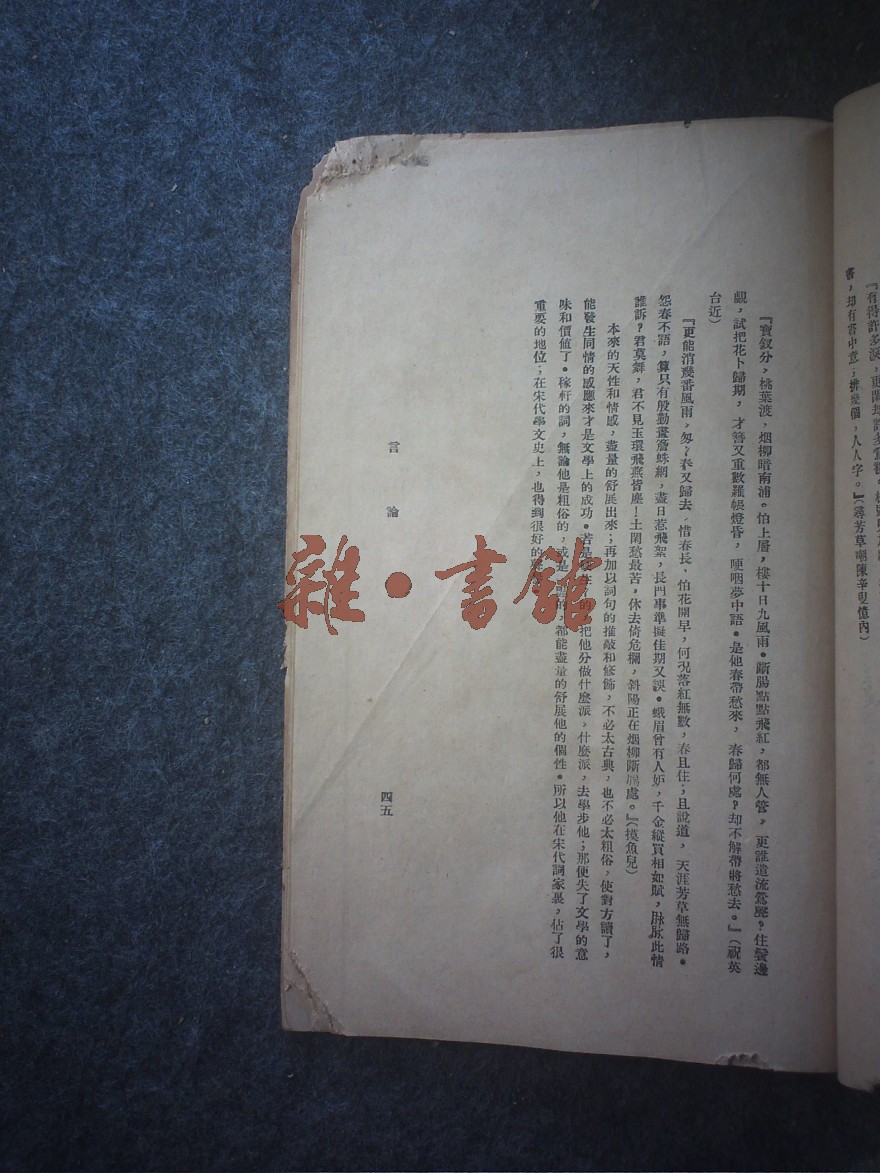 『有得許多淚，更閒却許多鴛鴦
書，却有書中意；排幾個，人人字。』(尋芳草嘲陳莘叟憶內)
『寶釵分，桃葉渡，烟柳暗南浦。怕上層，樓十日九風雨。斷腸點點飛紅，都無人管，更誰遣流鶯壓？住鬢邊
覷，試把花卜歸期，才簪又重數羅帳燈昏，哽咽夢中語。是他春帶愁來，春歸何處？却不解帶將愁去。』(祝英
台近)
『更能消幾番風雨，匆匆春又歸去，惜春長，怕花開早，何况落紅無數，春且住；且說道，天涯芳草無歸路。
怨春不語，算只有殷勤畫簷蛛網，盡日惹飛絮，長門事準擬佳期又誤。蛾眉曾有人妒，千金縱買相如賦，脉脉此情
誰訴？君莫舞，君不見玉環飛燕皆塵！土閑愁最苦，休去倚危欄，斜陽正在烟柳斷腸處。』(摸魚兒)
本來的天性和情感，盡量的舒展出來；再加以詞句的推敲和修飾，不必太古典，也不必太粗俗，使對方讀了，
能發生同情的感應來才是文學上的成功。若是 的，把他分做什麽派，什麽派，去學步他；那便失了文學的意
味和價値了。稼軒的詞，無論他是粗俗的，或是 的，都能盡量的舒展他的個性。所以他在宋代詞家裏，佔了很
重要的地位；在宋代學文史上，也得到很好的
言論
四五
雜·書館